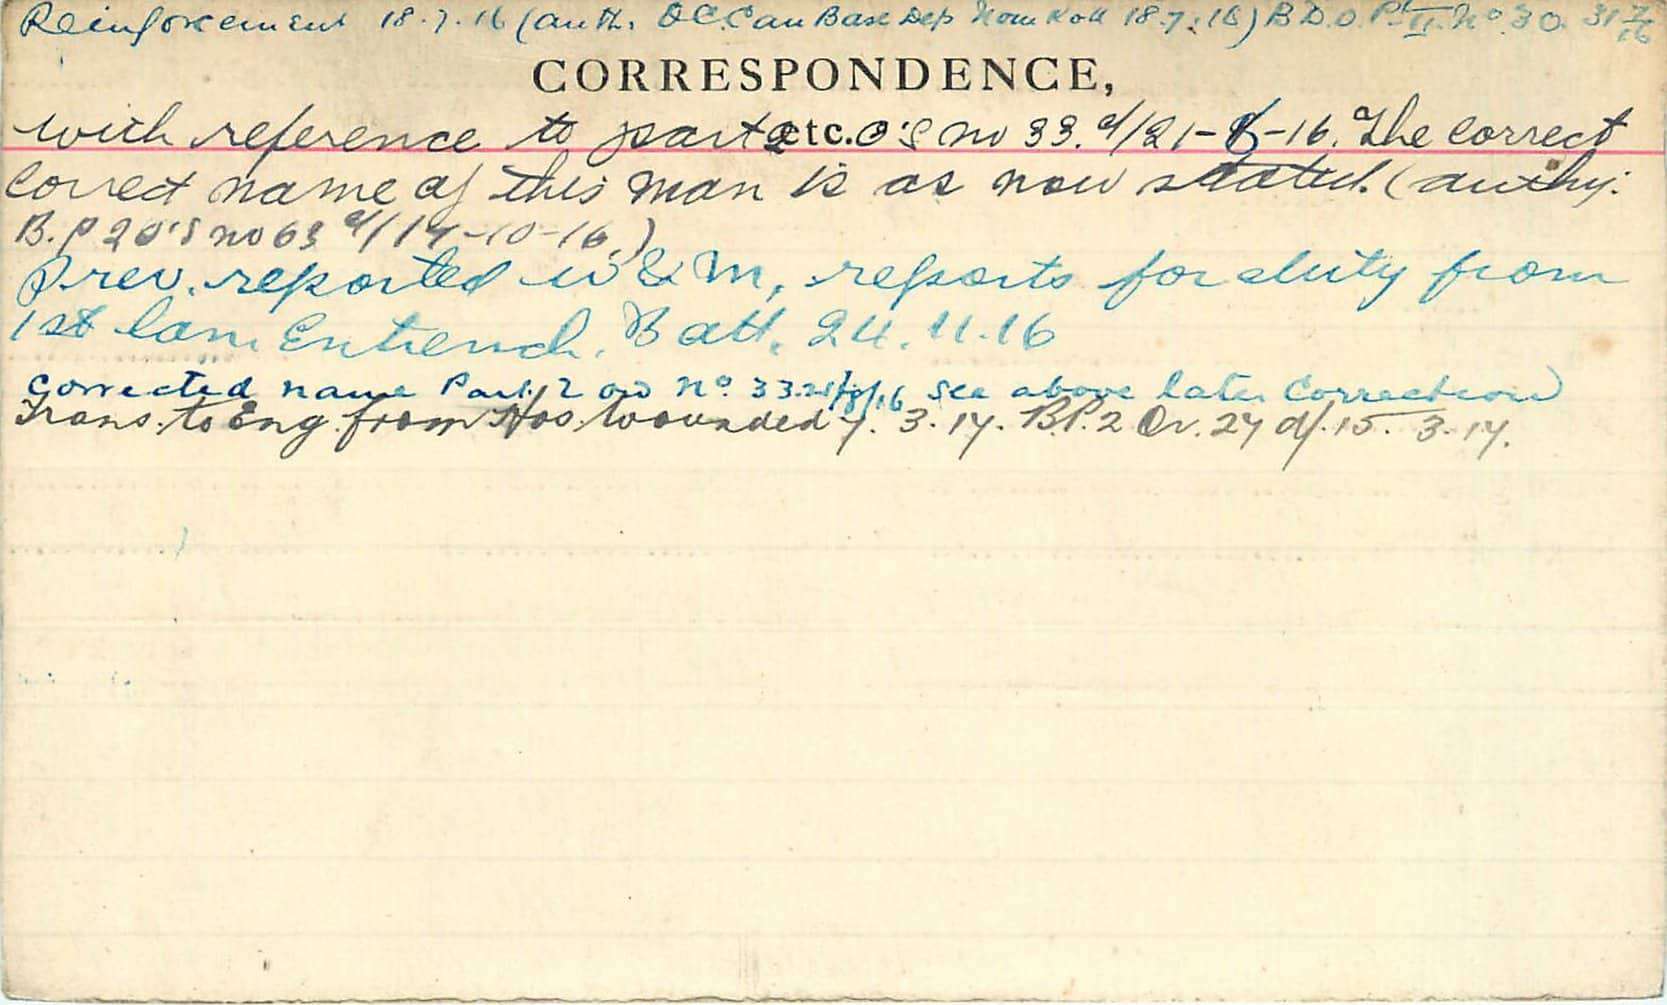 Reinforcement 18.7.16 (auth. O.C. Can Base Dep Nom Roll 18.7.16) B.D.O. Pt II. No 30. 31/7/16
CORRESPONDENCE,
etc.
with reference to part 2 O's no 33. d/21-8-16. The correct
correct name of this man is as now stated. (authy:
B.P 2 O's no 63 d/14-10-16.)
Prev. reported W & M, reports for duty from
1st Can Entrench. Batt. 24.11.16
Corrected name Part. 2 ord No. 33 21/8/16 see above later Correction)
Trans. to Eng. from Hos. wounded 7.3.17. B.P.2 Or. 27 d/.15-3-17.